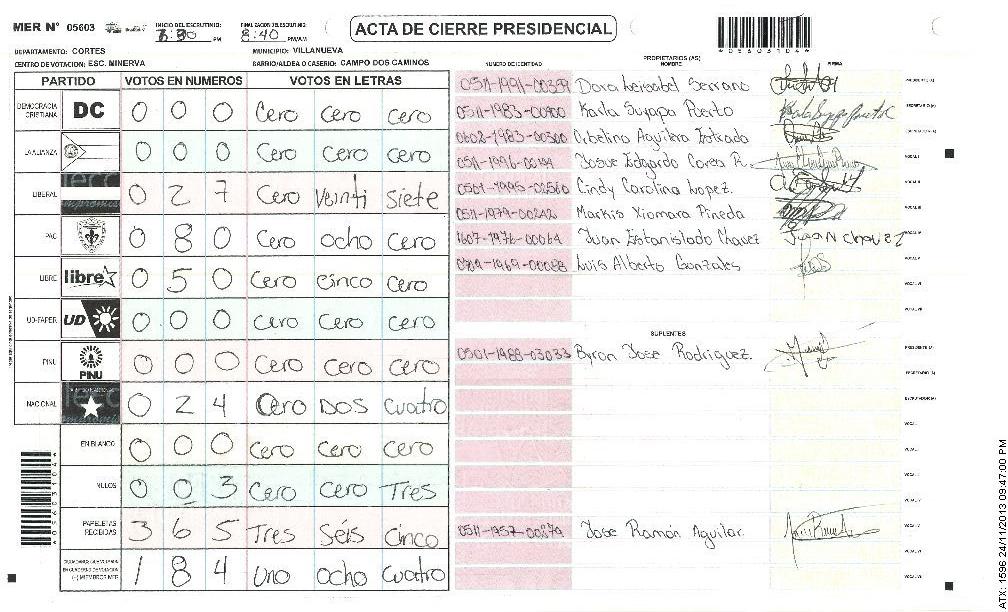 MER N° 05603 INICIO DEL ESCRUTINIO: PM FINALIZACION DEL ESCRUTINIO: 8:40 PM/AM ACTA DE CIERRE PRESIDENCIAL
DEPARTAMENTO: CORTES MUNICIPIO: VILLANUEVA
CENTRO DE VOTACION: ESC. MINERVA BARRIO/ALDEA O CASERIO: CAMPO DOS CAMINOS
PARTIDO VOTOS EN NUMEROS VOTOS EN LETRAS
DEMOCRACIA CRISTIANA DC 0 0 0 Cero Cero Cero
LA ALIANZA 0 0 0 Cero Cero Cero
LIBERAL 0 2 7 Cero Veinti Siete
PAC 0 8 0 Cero ocho Cero
LIBRE libre 0 5 0 Cero cinco Cero
UD-FAPER UD 0 0 0 Cero Cero Cero
PINU PINU 0 0 0 Cero Cero Cero
NACIONAL 0 2 4 Cero DOS Cuatro
EN BLANCO 0 0 0 Cero Cero Cero
NULOS 0 0 3 Cero Cero Tres
PAPELETAS RECIBIDAS 3 6 5 Tres Séis Cinco
1 8 4 Uno Ocho Cuatro
PROPIETARIOS (AS)
NUMERO DE IDENTIDAD NOMBRE FIRMA
Serrano PRESIDENTE (A)
0511-1983-00900 Karla Suyapa Puerto SECRETARIO (A)
0602-1983-00300 Aguilera
Josue Edgardo VOCAL I
Cindy Carolina Lopez. VOCAL II
0511-1979-00242 Xiomara Pineda VOCAL III
1607-1976-00064 Juan Chavez Juan Chavez VOCAL IV
Luis Alberto Gonzales VOCAL V
VOCAL VI
VOCAL VII
SUPLENTES
0501-1988-03033 Byron Jose Rodriguez. PRESIDENTE (A)
SECRETARIO (A)
ESCRUTADOR (A)
VOCAL I
VOCAL II
VOCAL III
VOCAL IV
Jose Ramón Aguilar. VOCAL V
VOCAL VI
VOCAL VII
*05603104*
*05603104*
ATX: 1596 24/11/2013 09:47:00 PM